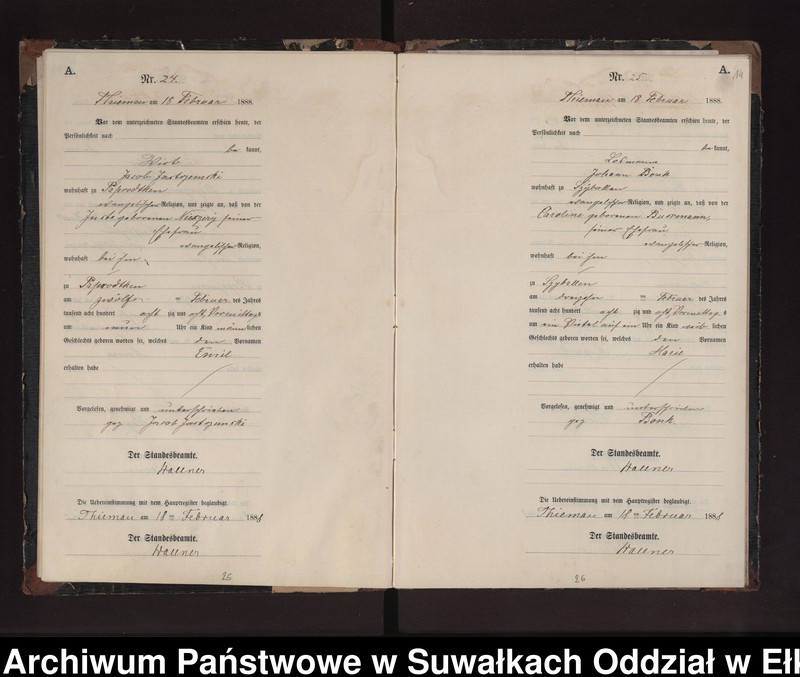 A.
Nr. 24.
Thiemau am 18 Februar 1888.
Vor dem unterzeichneten Standesbeamten erschien heute, der
Persönlichkeit nach
be kannt,
Wirt
Jacob
wohnhaft zu
evangelischer Religion, und zeigte an, daß von der
geborenen seiner
Ehefrau
evangelischer Religion,
wohnhaft bei ihm
zu
am zwölften Februar des Jahres
tausend acht hundert acht zig und acht Vormittags
um neun Uhr ein Kind männ lichen
Geschlechts geboren worden sei, welches den Vornamen
Emil
erhalten habe
Vorgelesen, genehmigt und unterschrieben
gez Jacob
Der Standesbeamte.
Hallner
Die Uebereinstimmung mit dem Hauptregister beglaubigt.
Thiemau am 18 ten Februar 1888
Der Standesbeamte.
Hallner
25
A.
14
Nr. 25.
Thiemau am 18 Februar 1888.
Vor dem unterzeichneten Standesbeamten erschien heute, der
Persönlichkeit nach
be kannt,
Losmann
Johann Bonk
wohnhaft zu Szyballen
evangelischer Religion, und zeigte an, daß von der
Caroline geborenen
seiner Ehefrau
evangelischer Religion,
wohnhaft bei ihm
zu Szyballen
am Februar des Jahres
tausend acht hundert acht zig und acht Vormittags
um ein Viertel auf ein Uhr ein Kind weib lichen
Geschlechts geboren worden sei, welches den Vornamen
Marie
erhalten habe
Vorgelesen, genehmigt und unterschrieben
gez Bonk
Der Standesbeamte.
Hallner
Die Uebereinstimmung mit dem Hauptregister beglaubigt.
Thiemau am 18 ten Februar 1888
Der Standesbeamte.
Hallner
26
Archiwum Państwowe w Suwałkach Oddział w Ełk